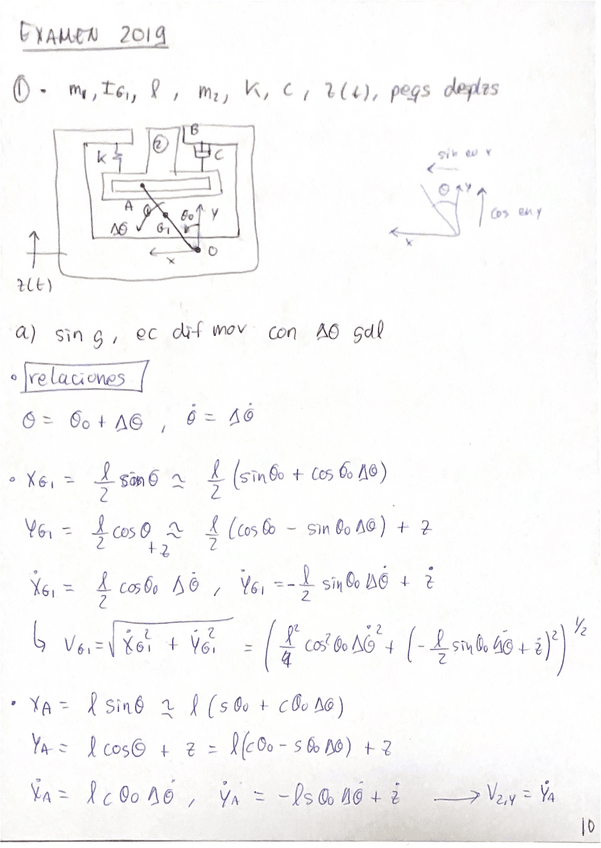 EXAMEN 2019
① · m₁, I_G₁, l, m₂, K, C, z(t), peqs desplzs
B
②
K
C
A
Δθ
G₁
θ₀
y
x
O
z(t)
sin en x
θ
y
cos en y
x
a) sin g, ec dif mov con Δθ gdl
• relaciones
θ = θ₀ + Δθ , θ̇ = Δθ̇
• x_G₁ = l/2 sinθ ≃ l/2 (sinθ₀ + cosθ₀ Δθ)
y_G₁ = l/2 cosθ + z ≃ l/2 (cosθ₀ - sinθ₀ Δθ) + z
ẋ_G₁ = l/2 cosθ₀ Δθ̇ , ẏ_G₁ = - l/2 sinθ₀ Δθ̇ + ż
↳ V_G₁ = √(ẋ_G₁² + ẏ_G₁²) = (l²/4 cos²θ₀ Δθ̇² + (- l/2 sinθ₀ Δθ̇ + ż)²)^1/2
• x_A = l sinθ ≃ l (sθ₀ + cθ₀ Δθ)
y_A = l cosθ + z = l(cθ₀ - sθ₀ Δθ) + z
ẋ_A = l cθ₀ Δθ̇ , ẏ_A = -l sθ₀ Δθ̇ + ż ⟶ V₂,y = ẏ_A
10